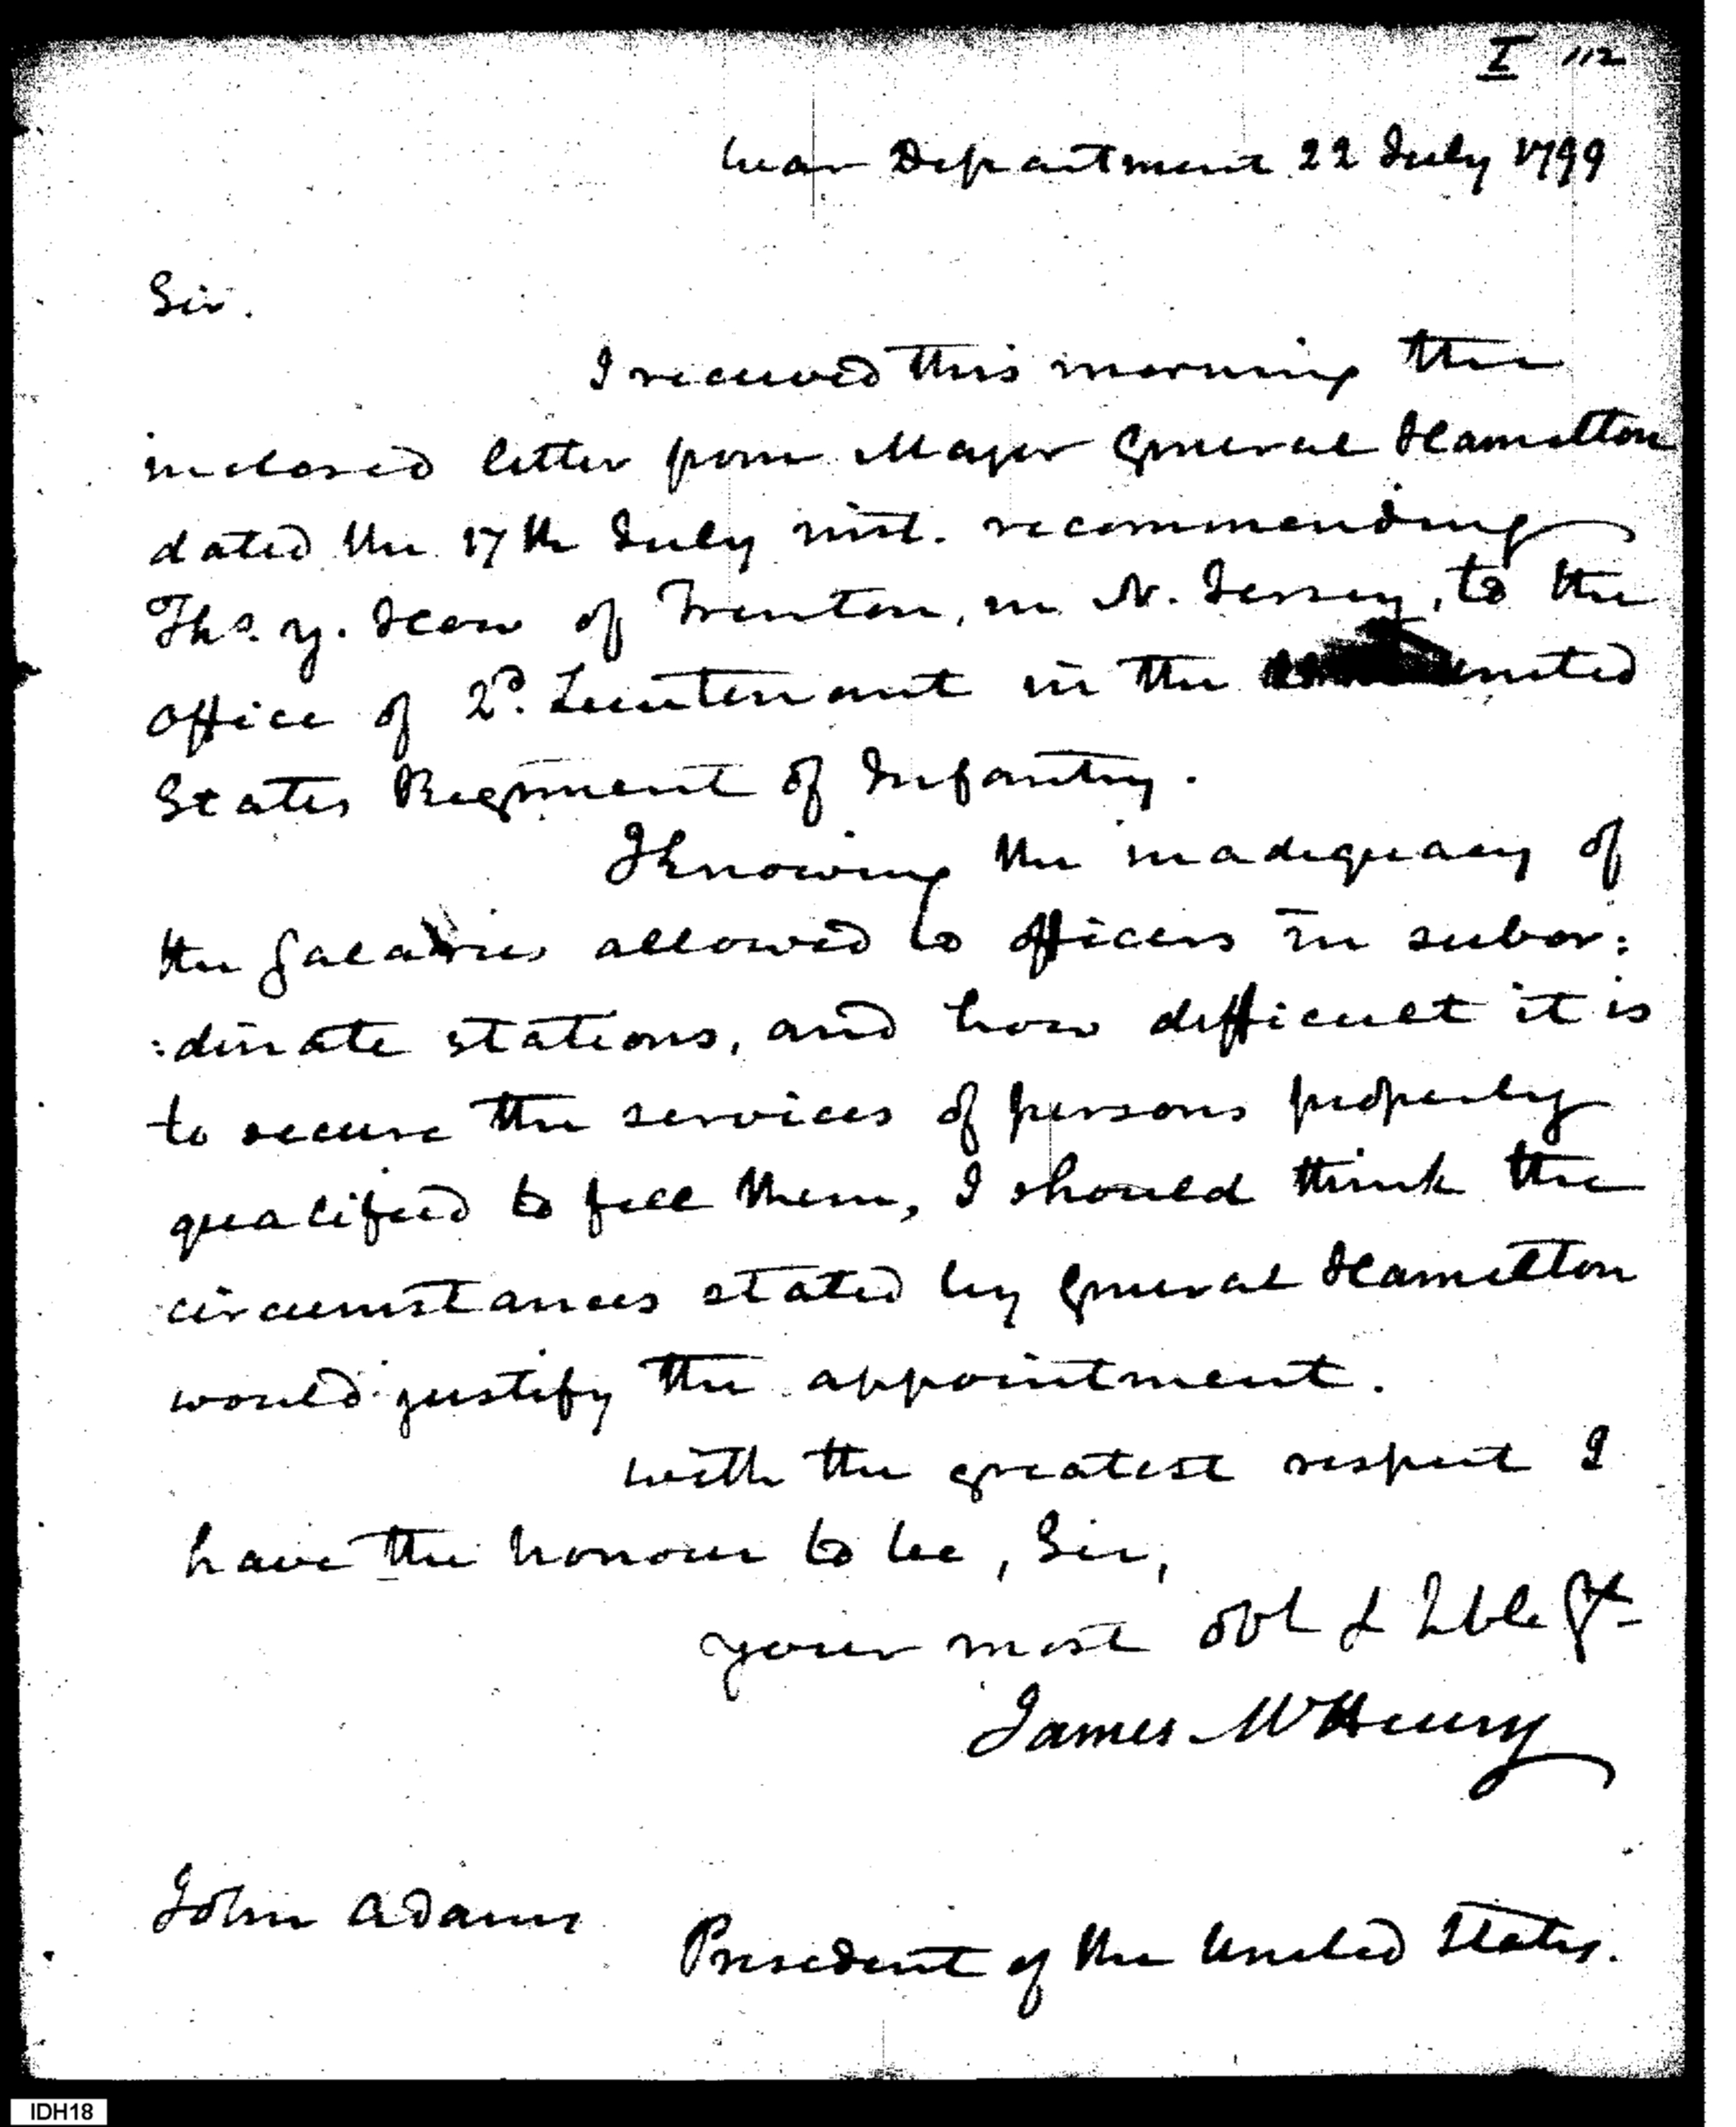 I 112
War Department 22 July 1799
Sir.
I received this morning the
inclosed letter from Major General Hamilton
dated the 17th July inst. recommending
Ths. Y. How of Trenton, in N. Jersey, to the
office of 2d. Lieutenant in the united
States Regiment of Infantry.
Knowing the inadequacy of
the salaries allowed to officers in subor:
:dinate stations, and how difficult it is
to secure the services of persons properly
qualified to fill them, I should think the
circumstances stated by General Hamilton
would justify the appointment.
With the greatest respect I
have the honour to be, Sir,
your most obt & hble St
James McHenry
John Adams
President of the United States.
IDH18